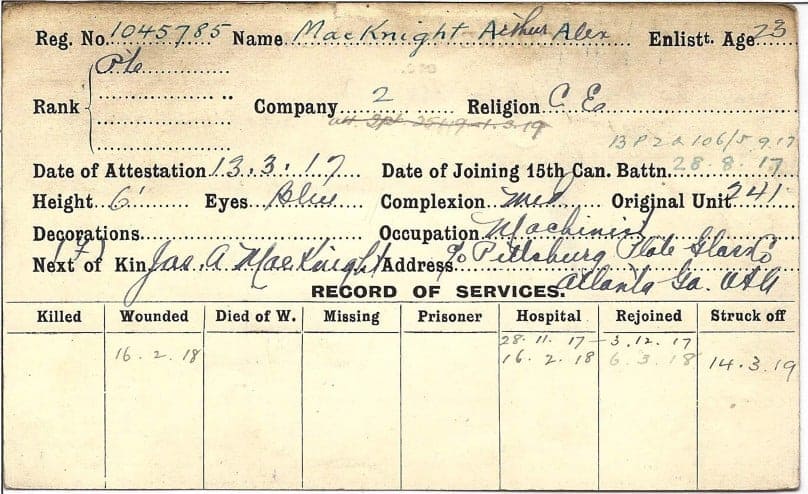 Reg. No. 1045785 Name MacKnight Arthur Alex Enlistt. Age 23
Pte
Rank Company 2 Religion C. E.
25.1.19 - 1.3.19
13 P 2 a 106/5 9.17
Date of Attestation 13.3.17 Date of Joining 15th Can. Battn. 28.8.17
Height 6' Eyes Blue Complexion Med Original Unit 241
Decorations Occupation Machinist
(F)
Next of Kin Jas. A MacKnight Address c/o Pittsburg Plate Glass Co
Atlanta Ga. USA
RECORD OF SERVICES.
Killed Wounded Died of W. Missing Prisoner Hospital Rejoined Struck off
28.11.17 - 3.12.17
16.2.18 16.2.18 6.3.18 14.3.19